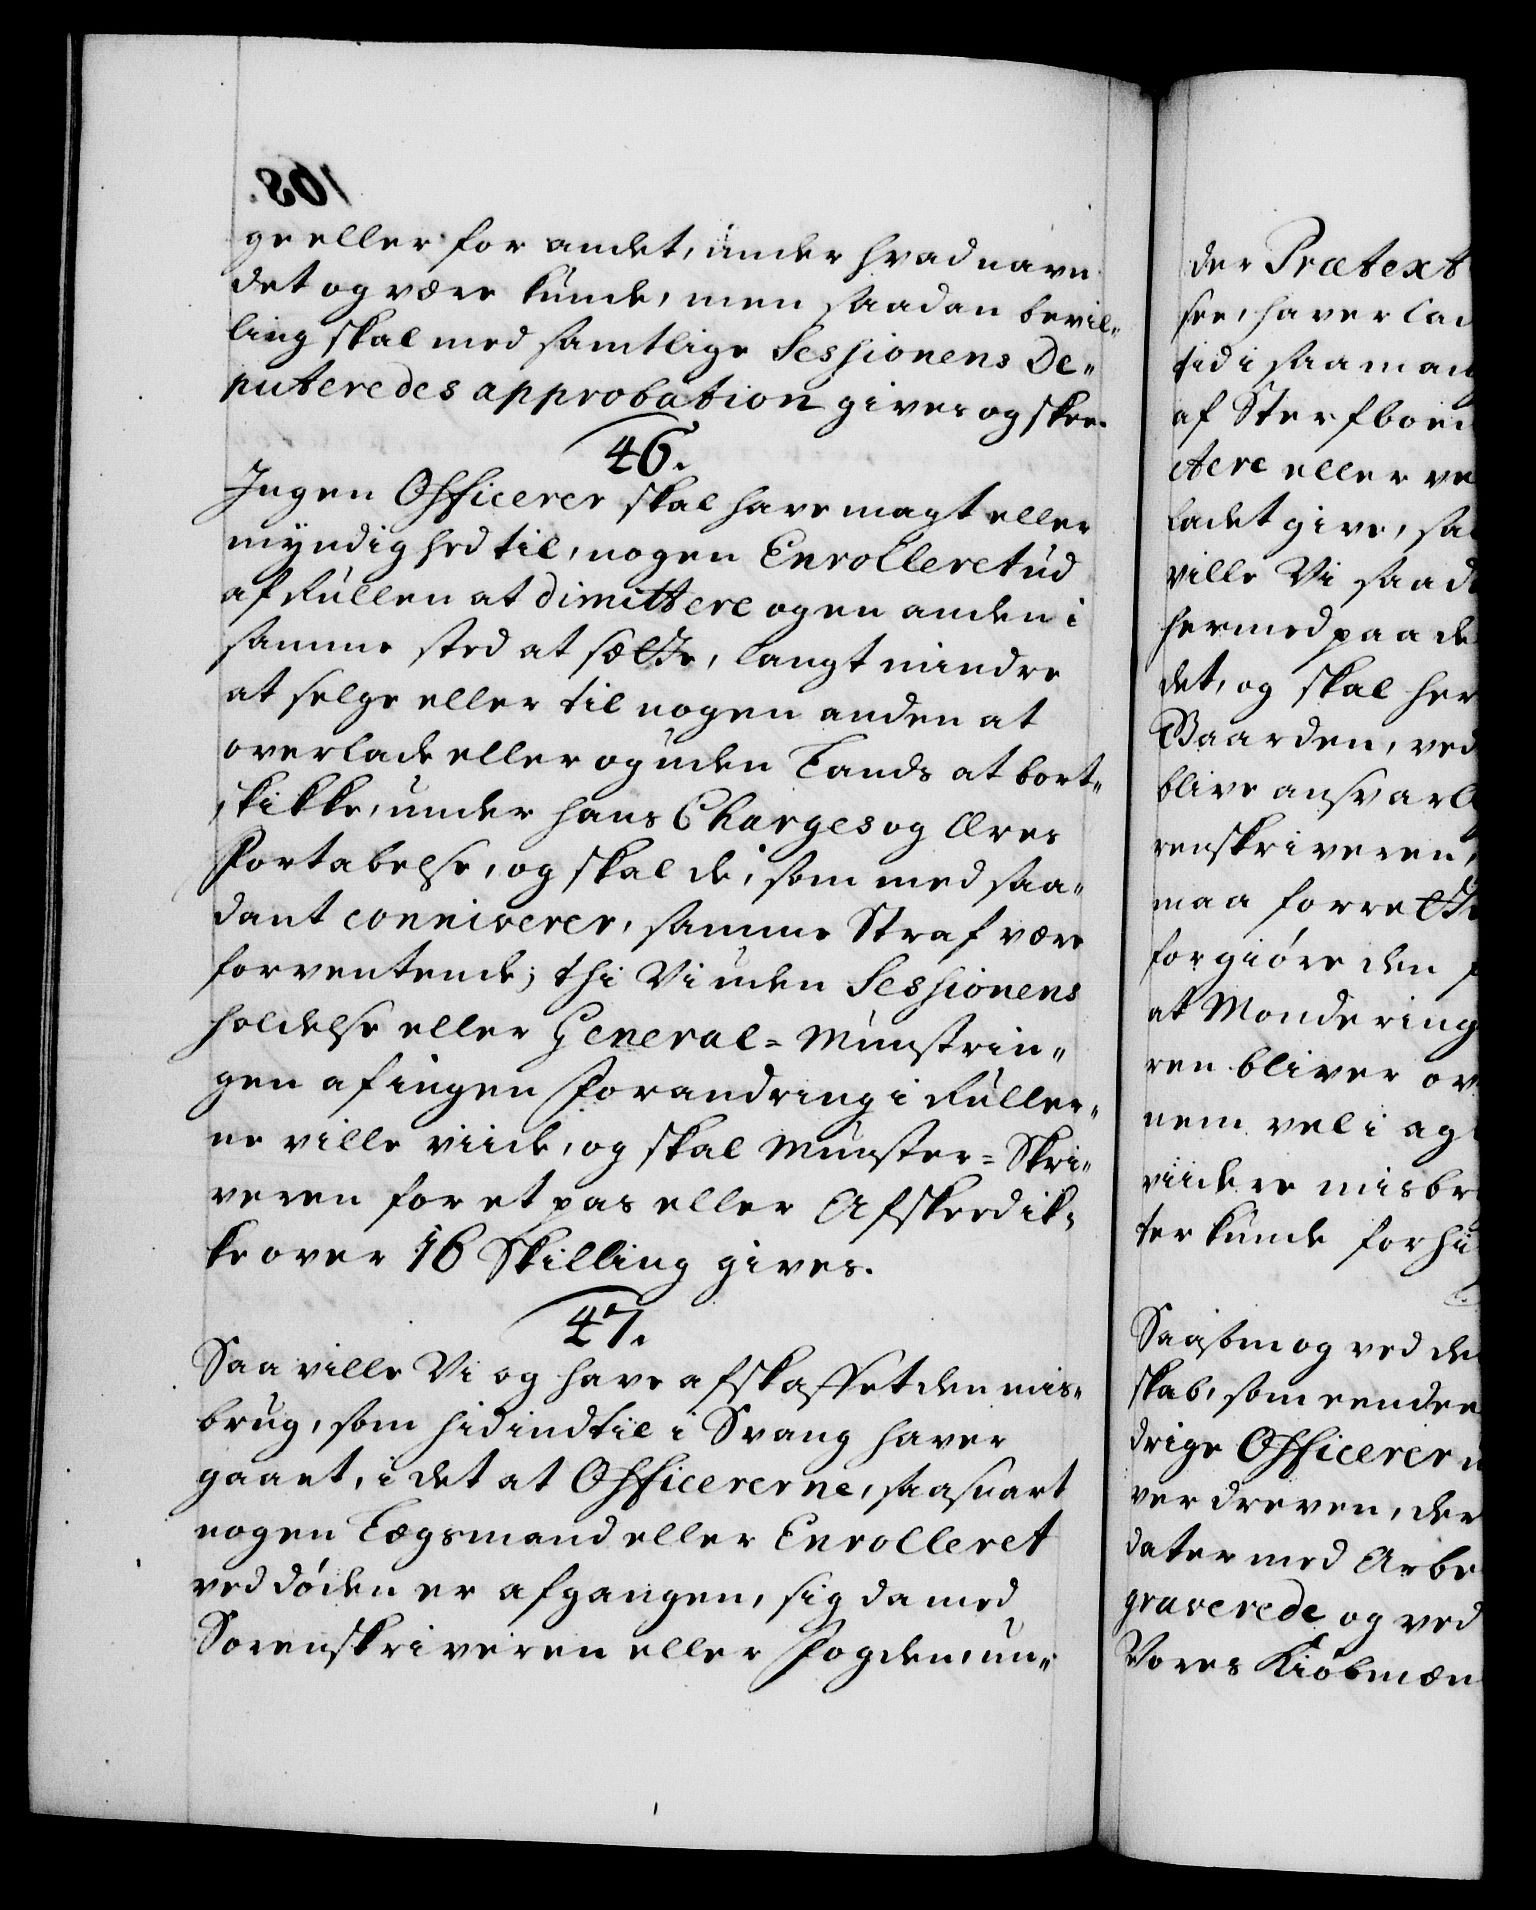 ge eller for andet, under hvad navn
det og være kunde, men saadan bevil„
ling skal med samtlige Sessionens De„
puteredes approbation gives og skee.
46.
Ingen Officerer skal have magt eller
myndighed til, nogen Enrolleret ud
af Rullen at dimittere og en anden i
samme sted at sætte, langt mindre
at selge eller til nogen anden at
overlade eller og uden Lands at bort„
skikke, under hans Charges og Æres
Fortabelse, og skal de, som med saa„
dant conniverer, samme Straf være
forventende; thi Vi uden Sessionens
holdelse eller General-Munstrin„
gen af ingen Forandring i Ruller„
ne ville viide, og skal Munster-Skri„
veren for et pas eller Afskeed ik„
ke over 16 Skilling gives.
47.
Saa ville Vi og have afskaffet den mis„
brug, som hidindtil i Svang haver
gaaet, i det at Officererne, saasnart
nogen Lægsmand eller Enrolleret
ved døden er afgangen, sig da med
Sorenskriveren eller Fogden, un„
der Prætext
see, haver lad
tid i saa man
af Sterfboe
tere eller ve
ladet give, sa
ville Vi saad
hermed paa de
det, og skal her
Gaarden, ved
blive ansvarl
renskriveren,
maa forrette
forgiøre den
at Mondering
ren bliver ov
nem vel i ag
viidere misbr
ter kunde forhi
Saasom og ved de
skab, som eendee
drige Officerer
ver dreven, der
dater med Arbe
graverede og ved
Vores Kiøbmæn